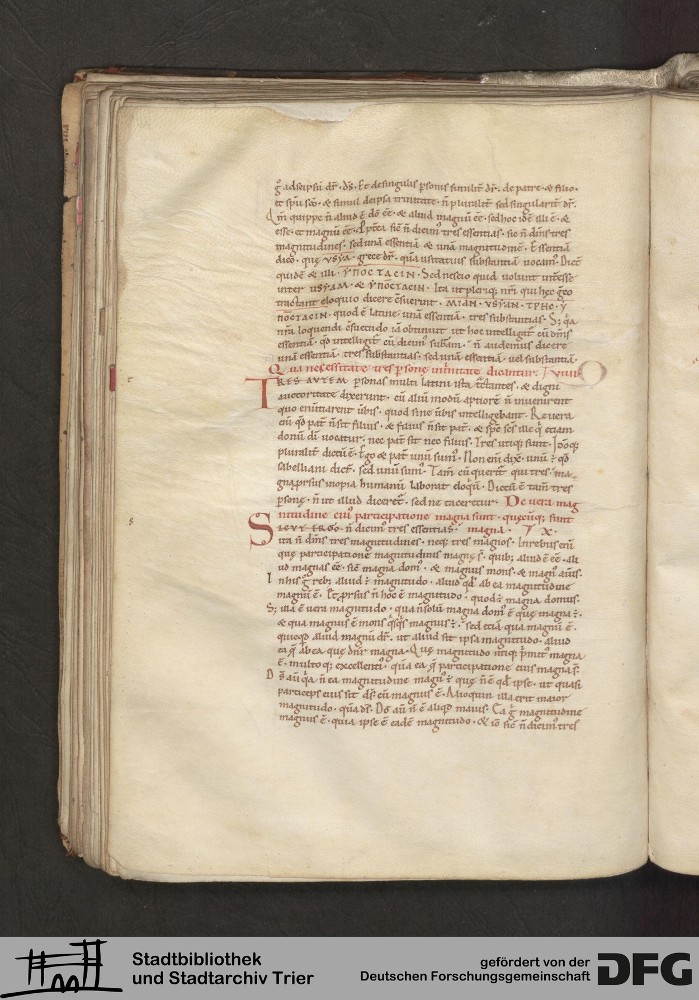 g̊ adseipsū dr̄. d̄s. Et de singulis p̄sonis similit̄ dr̄. de patre. & filio.
et sp̄u sc̄o. & simul de ipsa trinitate. n̄ pluralit̄ sed singularit̄ dr̄.
Qm̄ quippe n̄ aliud ē dō ēē. & aliud magnū ēē. sed hoc idē illi ē. &
esse. et magnū ēē. Ppt̄ea sic̄ n̄ dicim᷒ tres essentias. sic n̄ dim᷒ tres
magnitudines. sed unā essentiā & unā magnitudinē. Essentiā
dico. quę VSYA. grece dr̄. quā usitatius substantiā vocam᷒. Dic̄t
quidē & illi. YΠOCTACIN. Sed nescio quid volunt int̄esse
inter VSYAM. & YΠOCTACIN. Ita ut pleriq; nr̄i. qui hęc gr̨co
tractant eloquio dicere c̄suerint. MIAN. VSYAN. TPHC. Y
ΠOCTACIN. quod ē latine. unā essentiā. tres substantias. S; q̊a
nr̄a loquendi c̄suetudo iā obtinuit ut hoc intelligat̄ cū dim᷒
essentiā. qd̄ intelligit̄ cū dicim᷒ subam̄. n̄ audemus dicere
unā essentiā. tres substantias. sed unā essentiā. vel substantiā.
Qua necessitate tres p̄sonę in t̄nitate dicantur. VIIII
TRES AVTEM personas multi latini ista tc̄tantes. & digni
auctoritate dixerunt. cū aliū modū aptiorē n̄ invenirent
quo enuntiarent v̄bis. quod sine v̄bis intelligebant. Revera
cū qd̄ pat̄ n̄ sit filius. & filius n̄ sit pat̄. & sp̄c sc̄s ille q̊ etiam
donū dī vocatur. nec pat̄ sit nec filius. Tres utiq; sunt. Idoq;
pluralit̄ dictū ē. Ego & pat̄ unū sum᷒. Non enī dix̄. unū ē. qd̄
sabelliani dic̄t. sed unū sum᷒. Tam̄ cū querit̄ qui tres. ma
gna prsus inopia humanū laborat eloq̊ū. Dictū ē tam̄ tres
personę. n̄ ut illud diceret̄. sed ne taceretur. De vera mag
nitudine cui᷒ participatione magna sunt. quęcūq; sunt
SICVT ERGO n̄ dicim᷒ tres essentias. magna. X.
ita n̄ dim᷒ tres magnitudines. neq; tres magnos. In rebus eni᷒
quę participatione magnitudinis magnę s̄. quib; aliud ē ēē. ali
ud magnas ēē. sic̄ magna dom᷒. & magnus mons. & magn᷒ anis.
In his g̊ reb; aliud ē magnitudo. aliud qd̄ ab ea magnitudine
magnū ē. Et prsus n̄ hoc ē magnitudo. quod ē magna domus.
S; illa ē vera magnitudo. qua n̄ solū magna dom᷒ ē quę magna ē.
& qua magnus ē mons q̊sq̊s magnus ē. sed etiā qua magnū ē.
quicqd̄ aliud magnū dr̄. ut aliud sit ipsa magnitudo. aliud
ea q̨ ab ea quę dn̄r magna. Quę magnitudo utiq; p̊mit᷒ magna
ē. multoq; excellenti᷒. quā ea q̨ participatione eius magna s̄.
D̄s aū q̊a n̄ ea magnitudine magn᷒ ē quę n̄ ē qd̄ ipse. ut quasi
particeps eius sit d̄s. cū magnus ē. Alioquin illa erit maior
magnitudo. quā d̄s. D̄o aū n̄ ē aliqd̄ maius. Ea g̊ magnitudine
magnus ē. qua ipse ē eadē magnitudo. & iō sic̄ n̄ dicim᷒ tres
Stadtbibliothek
und Stadtarchiv Trier
gefördert von der
Deutschen Forschungsgemeinschaft
DFG